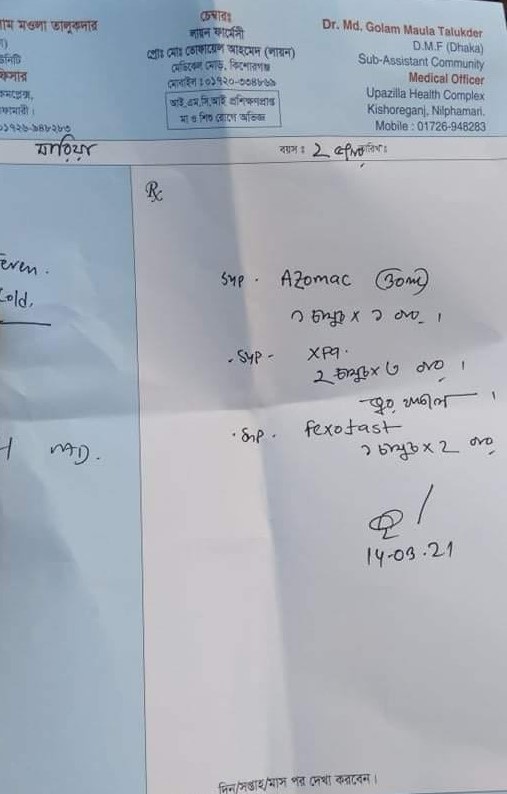 াম মওলা তালুকদার
নিটি
ফিসার
কমপ্লেক্স,
ফামারী।
০১৭২৬-৯৪৮২৮৩
চেম্বারঃ
লায়ন ফার্মেসী
প্রোঃ মোঃ তোফায়েল আহমেদ (লায়ন)
মেডিকেল মোড়, কিশোরগঞ্জ
মোবাইল : ০১৭২০-৩৩৪৮৬৯
আই,এম,সি,আই প্রশিক্ষণপ্রাপ্ত
মা ও শিশু রোগে অভিজ্ঞ
Dr. Md. Golam Maula Talukder
D.M.F (Dhaka)
Sub-Assistant Community
Medical Officer
Upazilla Health Complex
Kishoreganj, Nilphamari.
Mobile : 01726-948283
মারিয়া
বয়স : 2 তারিখ :
Rx
ever.
Cold,
Syp . Azomac (30ml)
১ চামুচ × ১ বার ।
Syp - XPA.
2 চামুচ × ৩ বার ।
Syp . fexofast
১ চামুচ × 2 বার
14-03.21
দিন/সপ্তাহ/মাস পর দেখা করবেন।